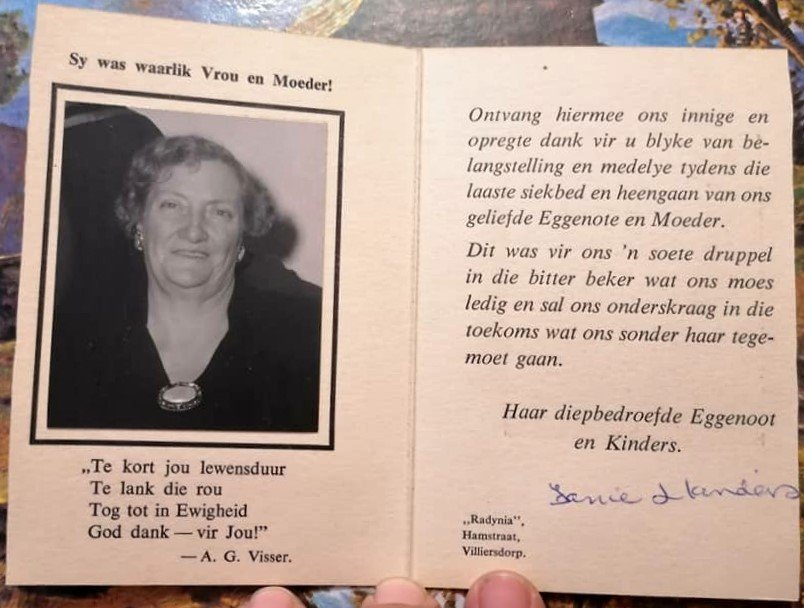 Sy was waarlik Vrou en Moeder!
„Te kort jou lewensduur
Te lank die rou
Tog tot in Ewigheid
God dank — vir Jou!”
— A. G. Visser.
Ontvang hiermee ons innige en
opregte dank vir u blyke van be-
langstelling en medelye tydens die
laaste siekbed en heengaan van ons
geliefde Eggenote en Moeder.
Dit was vir ons 'n soete druppel
in die bitter beker wat ons moes
ledig en sal ons onderskraag in die
toekoms wat ons sonder haar tege-
moet gaan.
Haar diepbedroefde Eggenoot
en Kinders.
„Radynia”,
Hamstraat,
Villiersdorp.